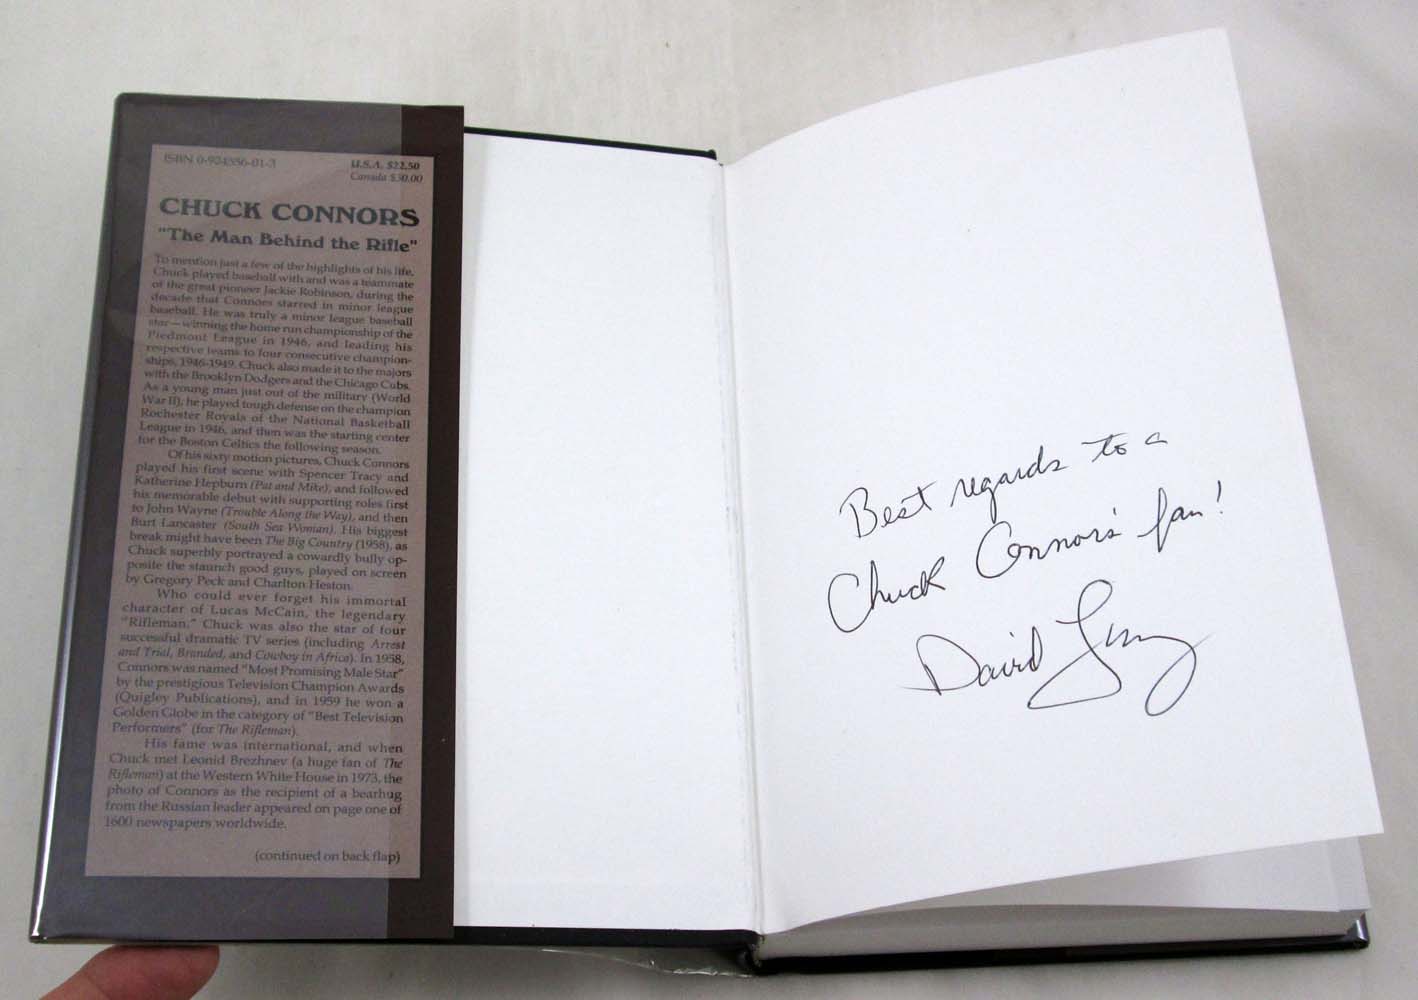 ISBN 0-924556-01-3
U.S.A. $22.50
Canada $30.00
CHUCK CONNORS
"The Man Behind the Rifle"
To mention just a few of the highlights of his life,
Chuck played baseball with and was a teammate
of the great pioneer Jackie Robinson, during the
decade that Connors starred in minor league
baseball. He was truly a minor league baseball
star—winning the home run championship of the
Piedmont League in 1946, and leading his
respective teams to four consecutive champion-
ships, 1946-1949. Chuck also made it to the majors
with the Brooklyn Dodgers and the Chicago Cubs.
As a young man just out of the military (World
War II), he played tough defense on the champion
Rochester Royals of the National Basketball
League in 1946, and then was the starting center
for the Boston Celtics the following season.
Of his sixty motion pictures, Chuck Connors
played his first scene with Spencer Tracy and
Katherine Hepburn (Pat and Mike), and followed
his memorable debut with supporting roles first
to John Wayne (Trouble Along the Way), and then
Burt Lancaster (South Sea Woman). His biggest
break might have been The Big Country (1958), as
Chuck superbly portrayed a cowardly bully op-
posite the staunch good guys, played on screen
by Gregory Peck and Charlton Heston.
Who could ever forget his immortal
character of Lucas McCain, the legendary
"Rifleman." Chuck was also the star of four
successful dramatic TV series (including Arrest
and Trial, Branded, and Cowboy in Africa). In 1958,
Connors was named "Most Promising Male Star"
by the prestigious Television Champion Awards
(Quigley Publications), and in 1959 he won a
Golden Globe in the category of "Best Television
Performers" (for The Rifleman).
His fame was international, and when
Chuck met Leonid Brezhnev (a huge fan of The
Rifleman) at the Western White House in 1973, the
photo of Connors as the recipient of a bearhug
from the Russian leader appeared on page one of
1600 newspapers worldwide.
(continued on back flap)
Best regards to a
Chuck Connors' fan!
David